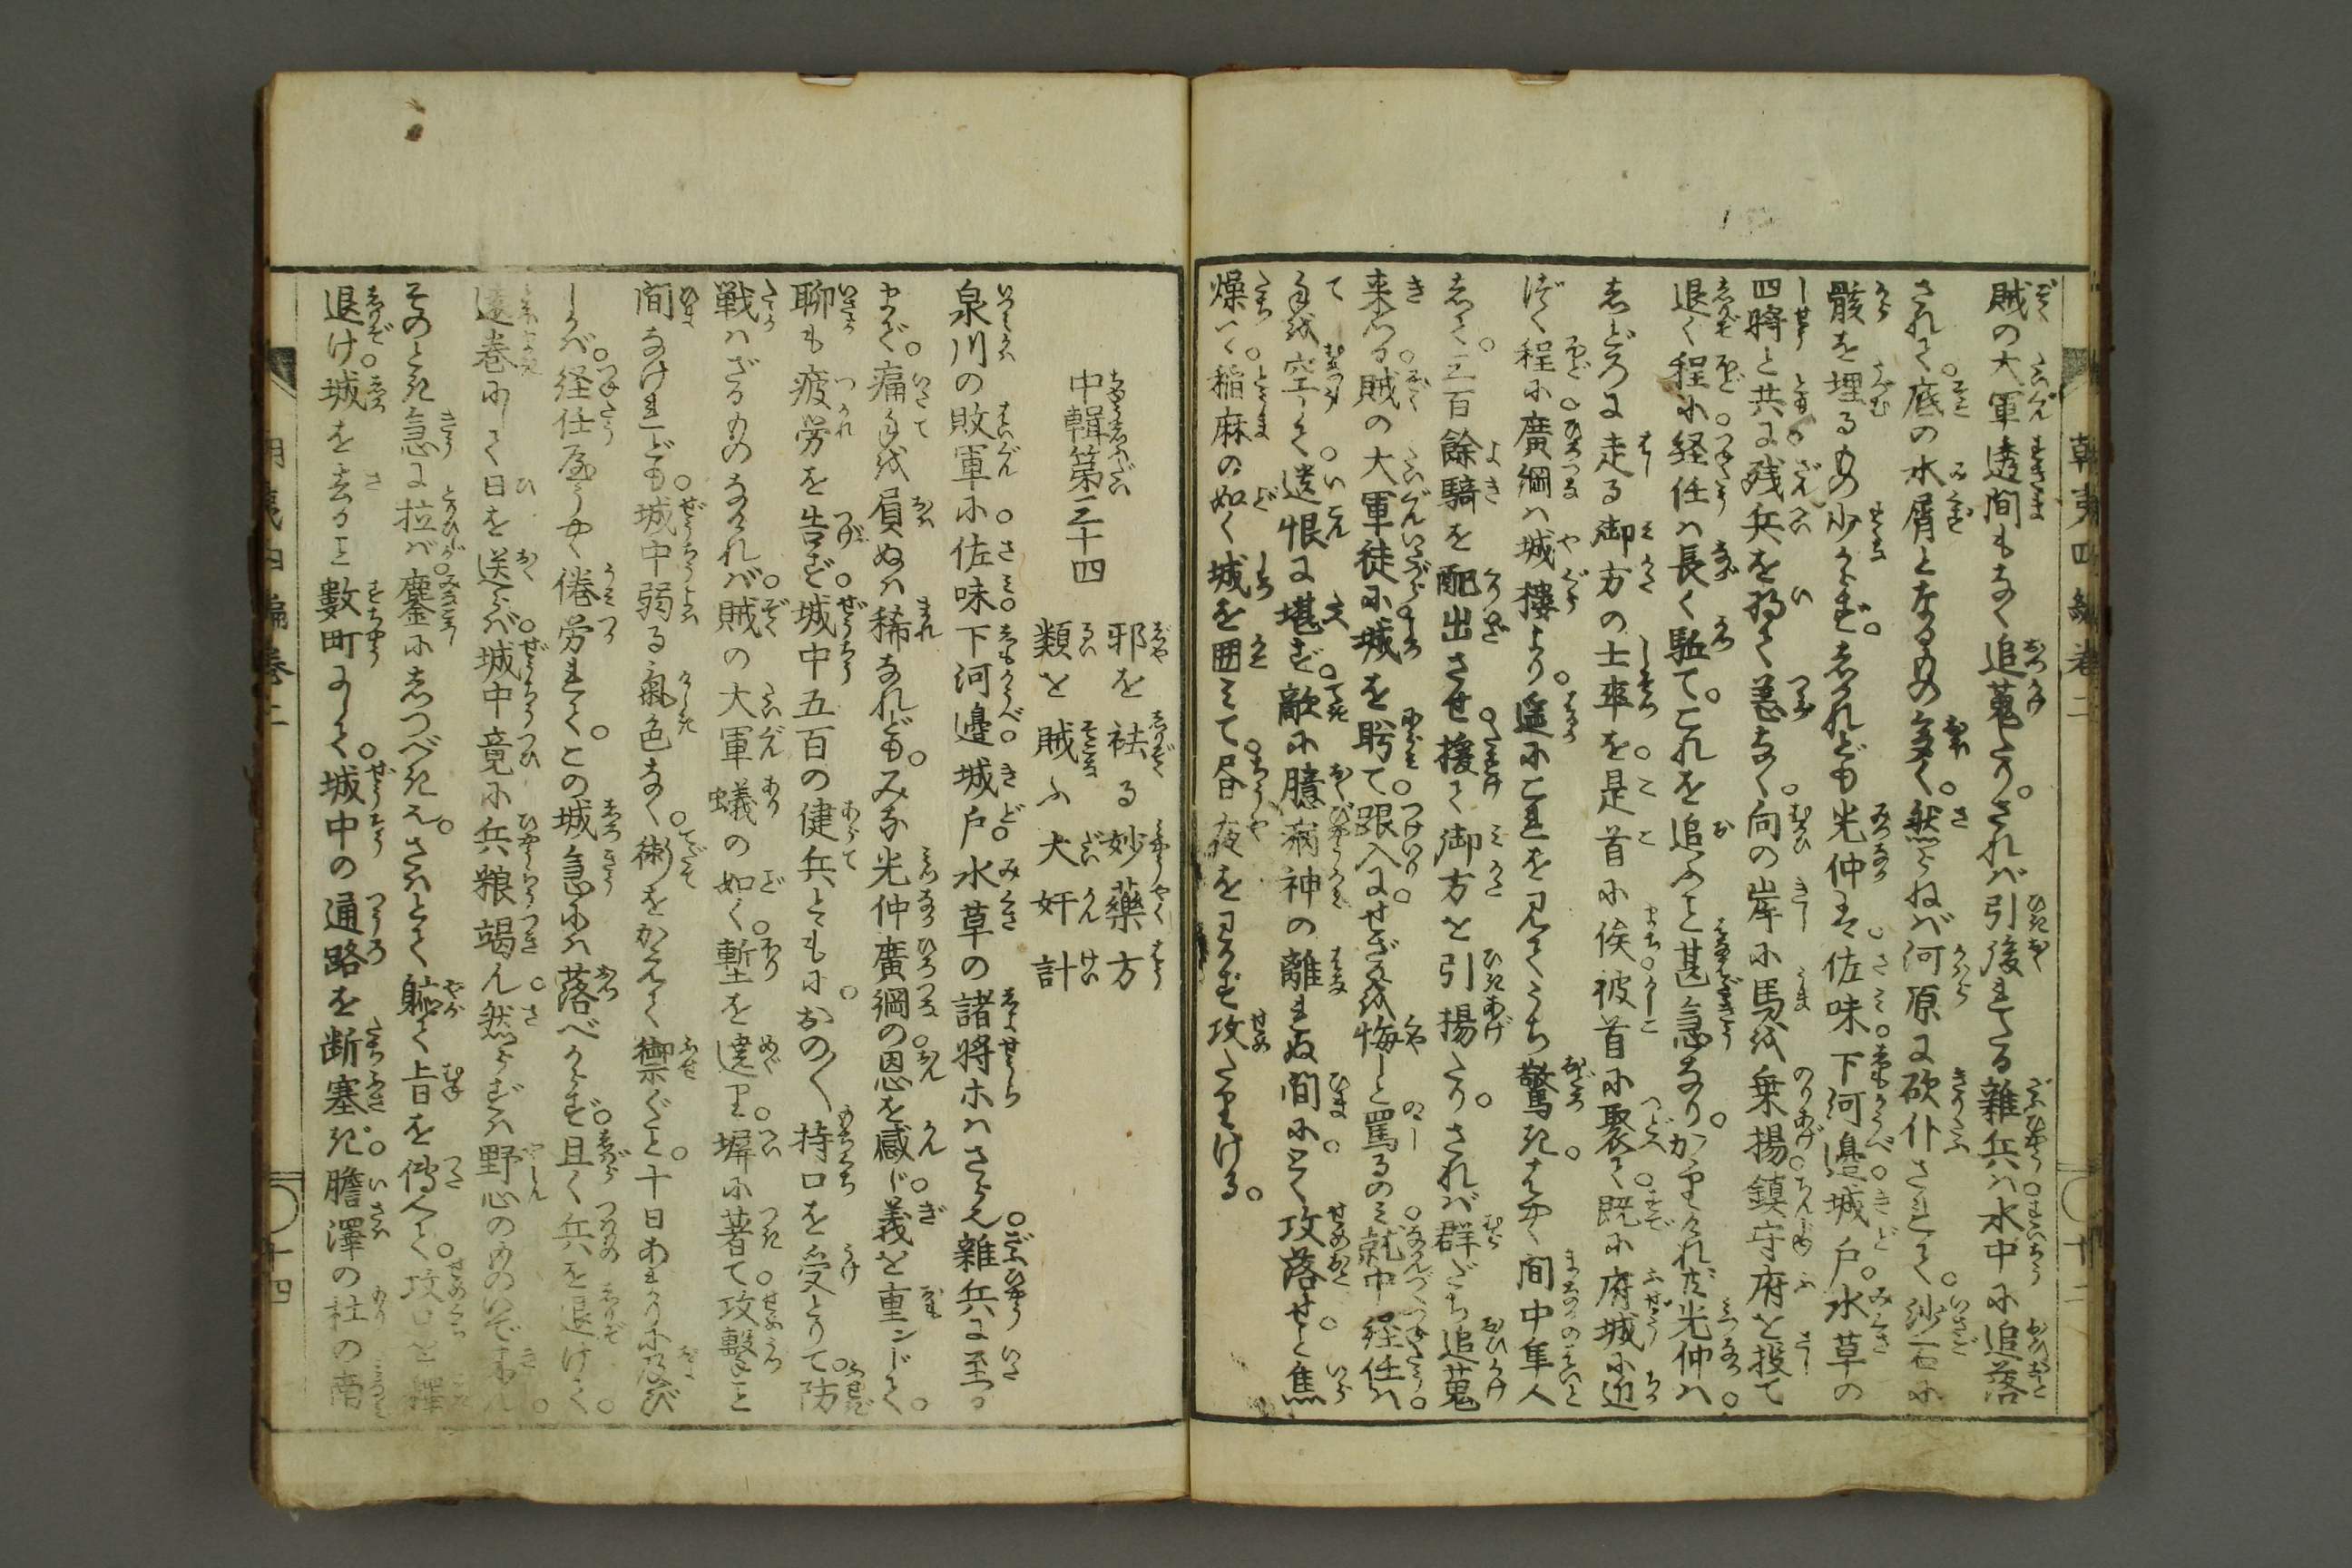 賊の大軍透間もなく追蒐たり。されば引後れたる雜兵は水中に追落
されて。底の水屑となるもの多く。然らねば河原に砍仆されて。沙石に
骸を埋るもの少からず。されども光仲は。佐味。下河邉。城戸。水草の
四將と共に。殘兵を將て恙なく。向の岸に馬を乗揚。鎮守府を投て
退く程に。経任は長く駈て。これを追ふこと甚急なりかゝりければ光仲は。
しどろに走る御方の士卒を。是首に俟。彼首に聚へ。既に府城に近
づく程に。廣綱は城樓より。遥にこれを見てうち驚き。はやく間中隼人
して。三百餘騎を配出させ。援て御方を引揚たり。されば群だち追蒐
来つる。賊の大軍徒に。城を眄て。跟入にせざるを悔しと罵るのみ。就中経任は。
手を空くして。遺恨に堪ず。敵に臆病神の離れぬ間に。とく攻落せと。焦
燥て。稲麻の如く城を囲みて。昼夜をわかず攻たりける。
中輯第三十四
邪を祛る妙藥方
類を賊ふ犬奸計
泉川の敗軍に。佐味。下河邉。城戸。水草の諸將ホはさら也。雜兵に至る
まで。痛手を負ぬは稀なれども。みな光仲廣綱の恩を感じ。義を重ンじて。
聊も疲労を告ず。城中五百の健兵とゝもに。おの〳〵持口を受とりて。防
戦はざるものなければ。賊の大軍蟻の如く。塹を遶り。塀に著て。攻撃こと
間なけれども。城中弱る氣色なく。術をかえて禦ぐと。十日あまりに及び
しかば。経任屡うやく倦労れて。この城急には落べからず。且く兵を退けて。
遠巻にして日を送らば。城中竟に兵粮竭ん。然らずは野心のものいで来ん。
そのとき急に拉ば。鏖にしつべき也。さはとて軈て旨を傳へて。攻口を釋
退け。城を去ること數町にして。城中の通路を断塞ぎ。膽澤の社の南